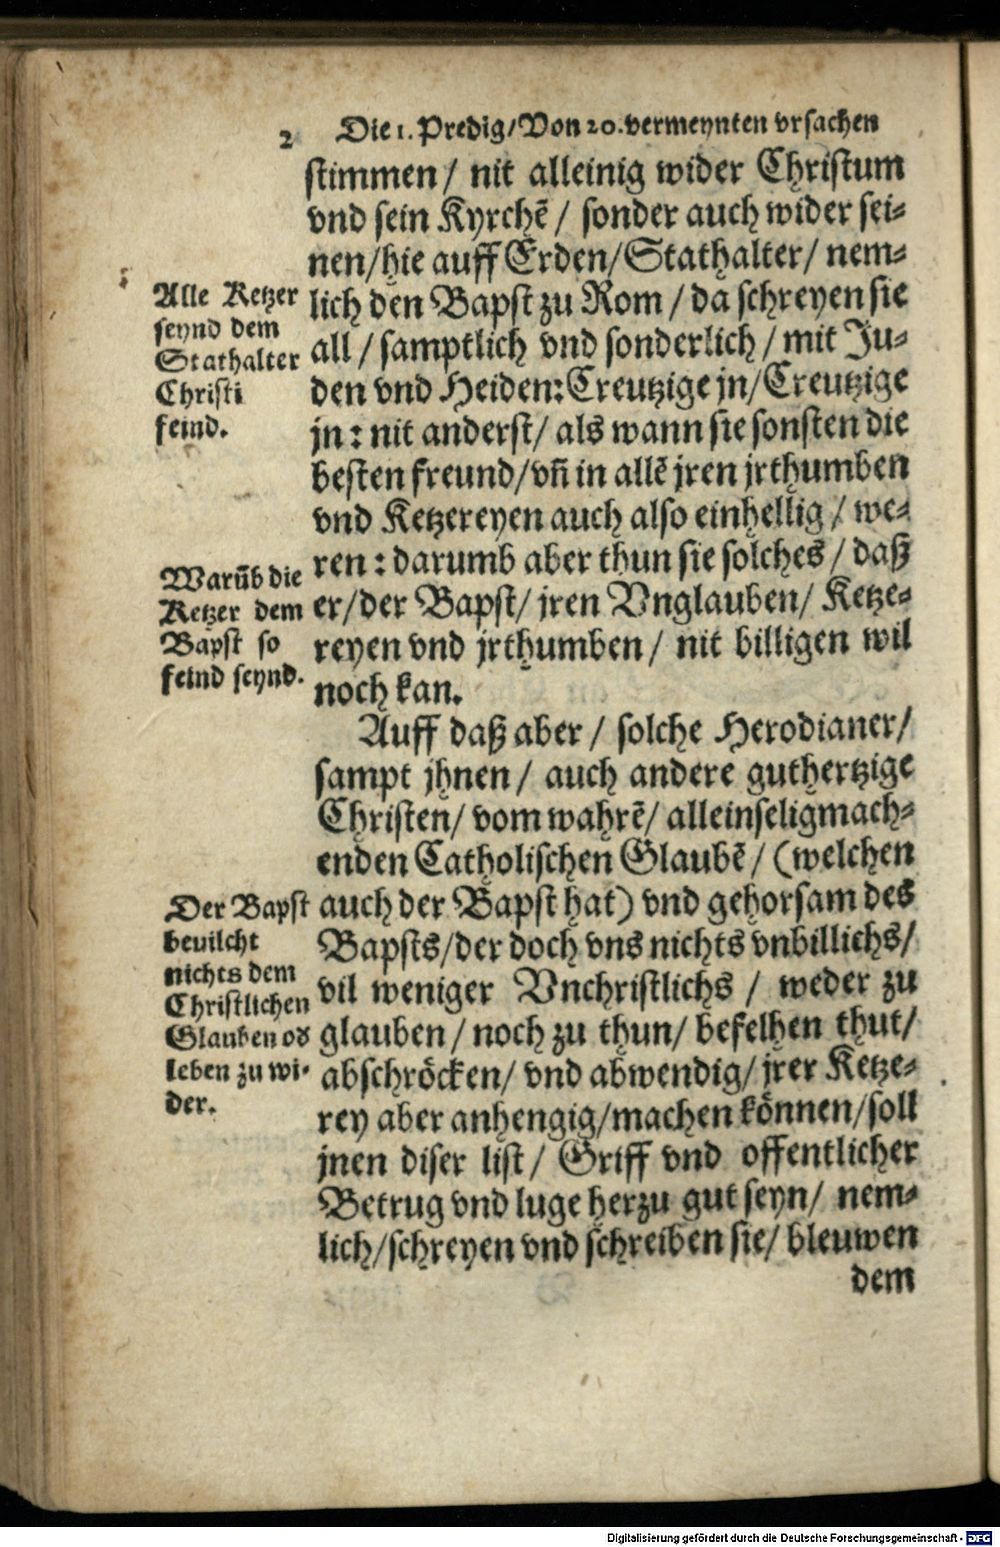 2 Die 1. Predig/Von 20. vermeynten vrsachen
stimmen/ nit alleinig wider Christum
vnd sein Kyrchẽ/ sonder auch wider sei-
nen/hie auff Erden/Stathalter/ nem-
lich den Bapst zu Rom/da schreyen sie
all/samptlich vnd sonderlich/mit Ju-
den vnd Heiden:Creutzige jn/Creutzige
jn: nit anderst/ als wann sie sonsten die
besten freund/vñ in allẽ jren jrthumben
vnd Ketzereyen auch also einhellig/we-
ren: darumb aber thun sie solches/daß
er/der Bapst/jren Vnglauben/Ketze-
reyen vnd jrthumben/ nit billigen wil
noch kan.
Auff daß aber/ solche Herodianer/
sampt jhnen/ auch andere guthertzige
Christen/ vom wahrẽ/ alleinseligmach-
enden Catholischen Glaubẽ/(welchen
auch der Bapst hat) vnd gehorsam des
Bapsts/der doch vns nichts vnbillichs/
vil weniger Vnchristlichs/ weder zu
glauben/noch zu thun/ befelhen thut/
abschröcken/ vnd abwendig/jrer Ketze-
rey aber anhengig/machen können/soll
jnen diser list/ Griff vnd offentlicher
Betrug vnd luge herzu gut seyn/ nem-
lich/schreyen vnd schreiben sie/ bleuwen
dem
Alle Ketzer
seynd dem
Stathalter
Christi
feind.
Warũb die
Ketzer dem
Bapst so
feind seynd.
Der Bapst
beuilcht
nichts dem
Christlichen
Glauben oď
leben zu wi-
der.
Digitalisierung gefördert durch die Deutsche Forschungsgemeinschaft - DFG